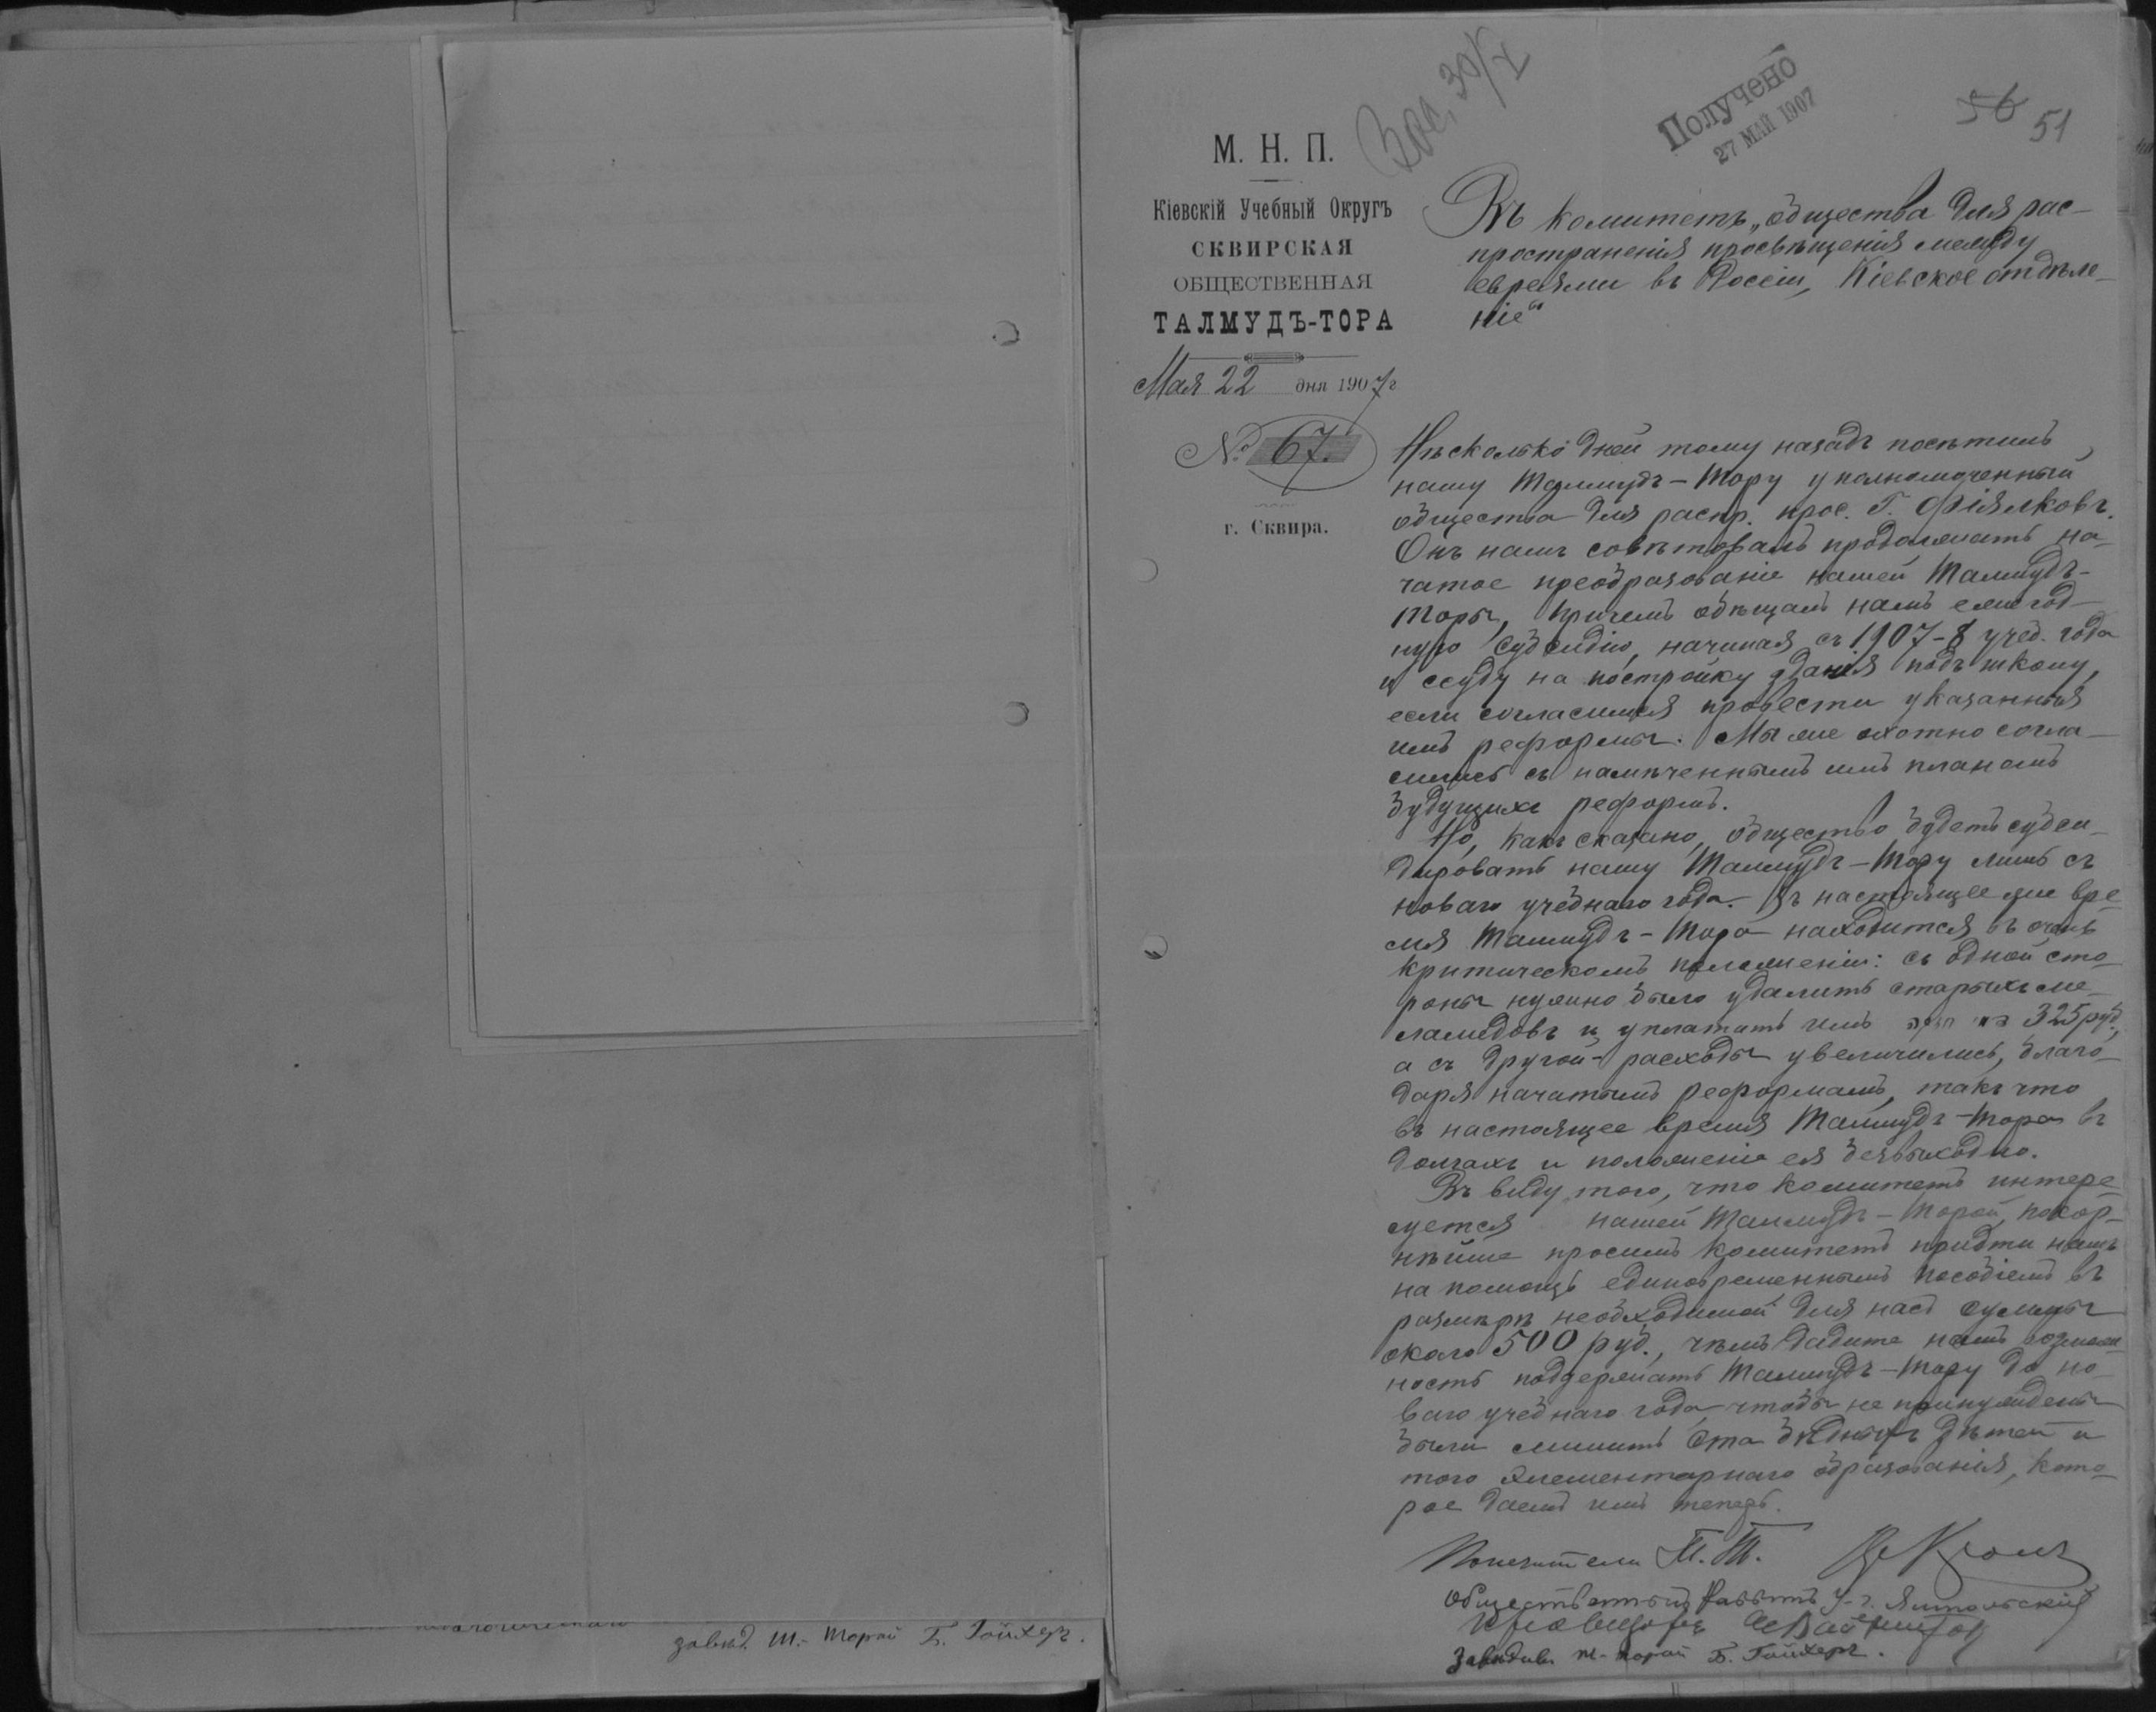 Зас. 30/V
Получено
27 МАЙ 1907
56 51
М. Н. П.
Кіевскій Учебный Округъ
СКВИРСКАЯ
ОБЩЕСТВЕННАЯ
ТАЛМУДЪ-ТОРА
Мая 22 дня 1907 г
№ 67.
г. Сквира.
Въ комитетъ „общества для рас-
пространенія просвѣщенія между
евреями въ Россіи, Кіевское отдѣле-
ніе“
Нѣсколько дней тому назадъ посѣтилъ
нашу Талмудъ-Тору уполномоченный
общества для распр. прос. Г. Фіялковъ.
Онъ намъ совѣтовалъ продолжать на-
чатое преобразованіе нашей Талмудъ-
Торы, причемъ обѣщалъ намъ ежегод-
ную субсидію, начиная съ 1907-8 учеб. года
и ссуду на постройку зданія подъ школу,
если согласимся провести указанныя
имъ реформы. Мы же охотно согла-
сились съ намѣченнымъ имъ планомъ
будущихъ реформъ.
Но, какъ сказано, общество будетъ субси-
дировать нашу Талмудъ-Тору лишь съ
новаго учебнаго года. Въ настоящее же вре-
мя Талмудъ-Тора находится въ очень
критическомъ положеніи: съ одной сто-
роны нужно было удалить старыхъ ме-
ламедовъ и уплатить имъ 325 руб.,
а съ другой - расходы увеличились, благо-
даря начатымъ реформамъ, такъ что
въ настоящее время Талмудъ-Тора въ
долгахъ и положеніе ея безвыходно.
Въ виду того, что комитетъ интере-
суется нашей Талмудъ-Торой, покор-
нѣйше просимъ комитетъ придти намъ
на помощь единовременнымъ пособіемъ въ
размѣрѣ необходимой для насъ суммы
около 500 руб., чѣмъ дадите намъ возмож-
ность поддержать Талмудъ-Тору до но-
ваго учебнаго года, чтобы не принуждены
были лишить ста бѣдныхъ дѣтей и
того элементарнаго образованія, кото-
рое даемъ имъ теперь.
Попечители Т. Т.
Общественный Раввинъ
Завѣдыв. т-торой Б. Гойхеръ.
завѣд. т.- торой Б. Гойхеръ.